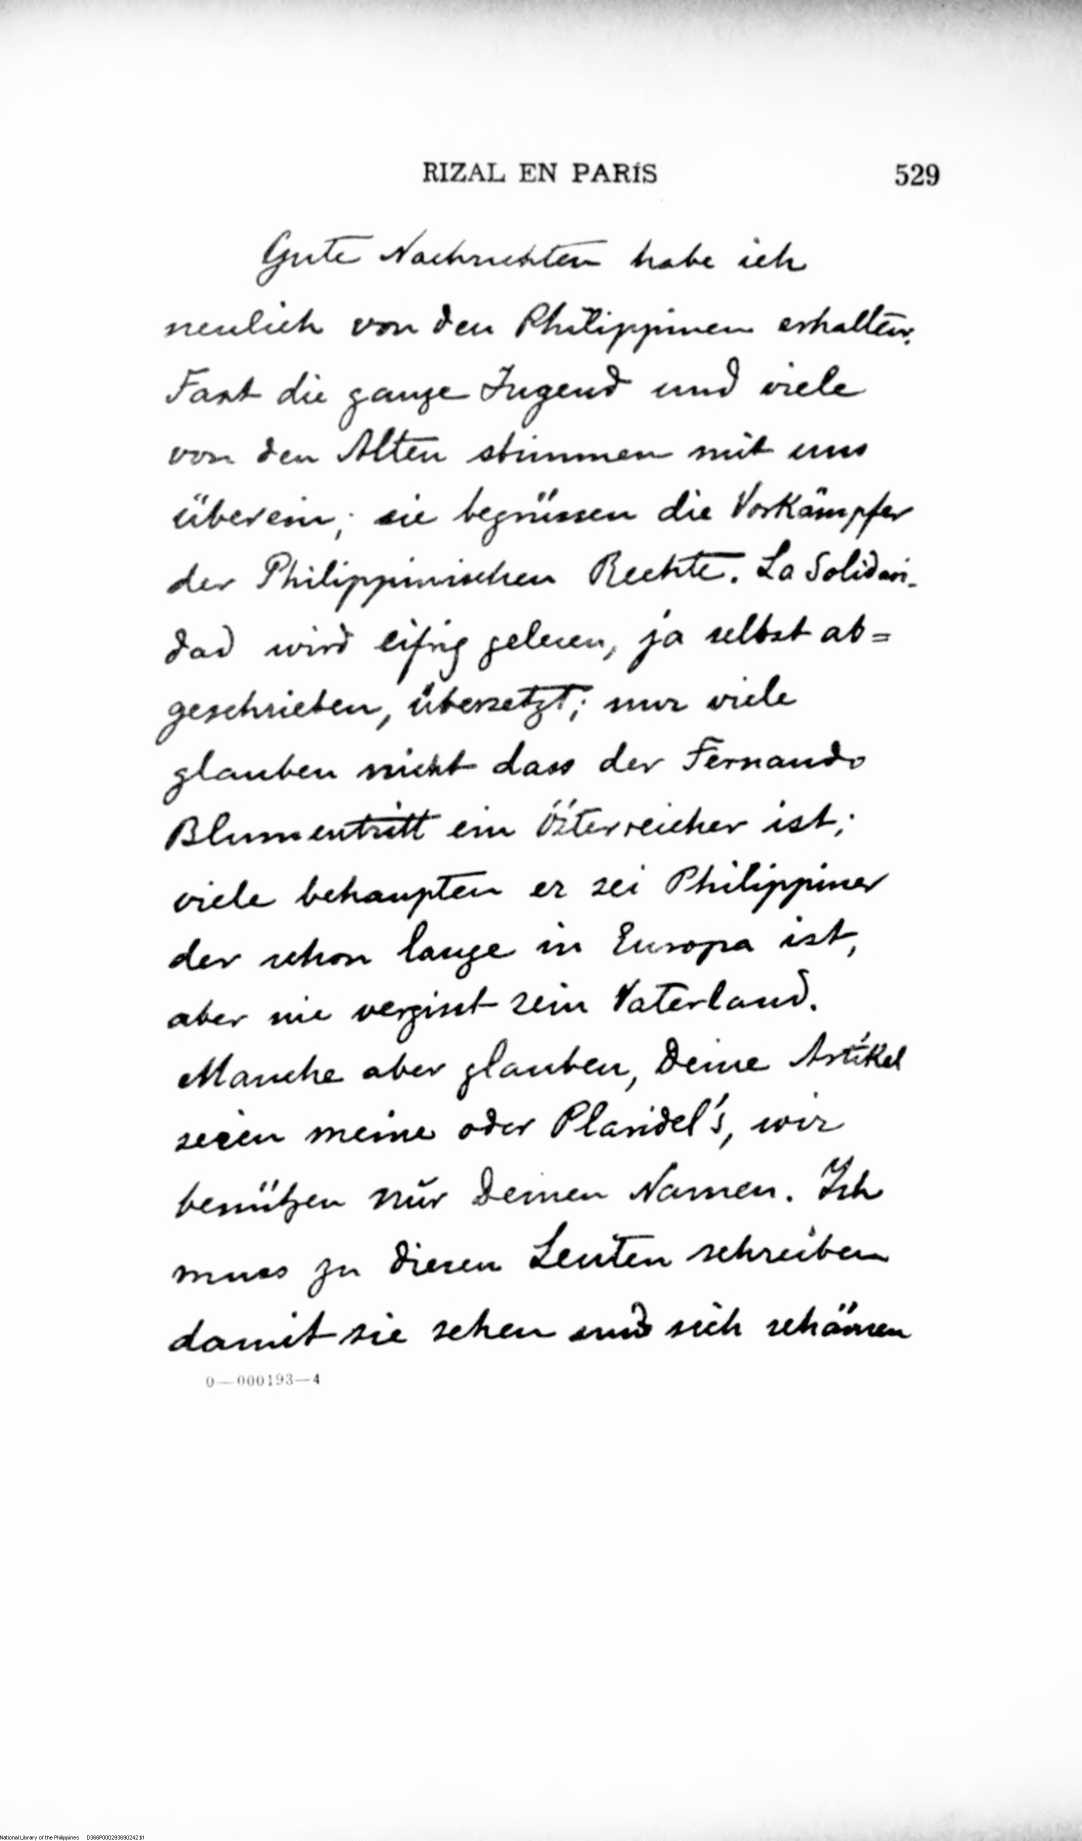 RIZAL EN PARÍS 529
Gute Nachrichten habe ich
neulich von den Philippinen erhalten.
Fast die ganze Jugend und viele
von den Alten stimmen mit uns
überein; sie begrüssen die Vorkämpfer
der Philippinischen Rechte. La Solidari-
dad wird eifrig gelesen, ja selbst ab=
geschrieben, übersetzt; nur viele
glauben nicht dass der Fernando
Blumentritt ein Österreicher ist;
viele behaupten er sei Philippiner
der schon lange in Europa ist,
aber nie vergisst sein Vaterland.
Manche aber glauben, Deine Artikel
seien meine oder Plaridel's, wir
benützen nur Deinen Namen. Ich
muss zu diesen Leuten schreiben
damit sie sehen und sich schämen
0—000193—4
National Library of the Philippines